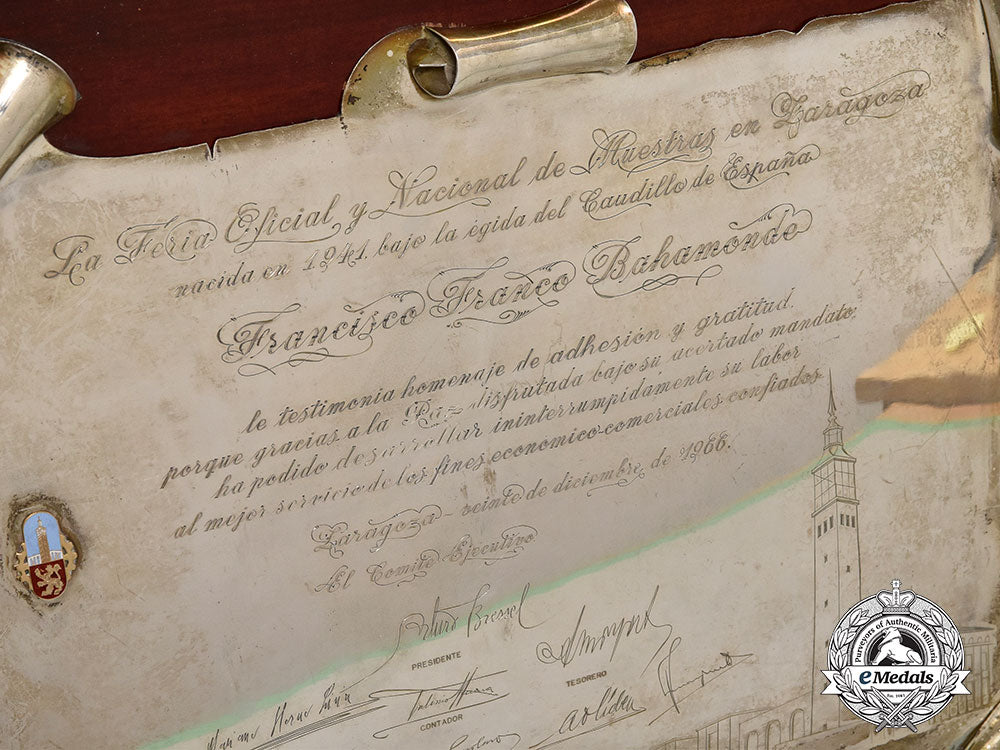 La Feria Oficial y Nacional de Muestras en Zaragoza
nacida en 1941, bajo la égida del Caudillo de España
Francisco Franco Bahamonde
le testimonia homenaje de adhesión y gratitud.
porque gracias a la Paz disfrutada bajo su acertado mandato
ha podido desarrollar ininterrumpidamente su labor
al mejor servicio de los fines económico-comerciales confiados
Zaragoza - veinte de diciembre de 1966.
El Comité Ejecutivo
Arturo Bressel
PRESIDENTE
TESORERO
Mariano Horno
CONTADOR
Purveyors of Authentic Militaria
eMedals